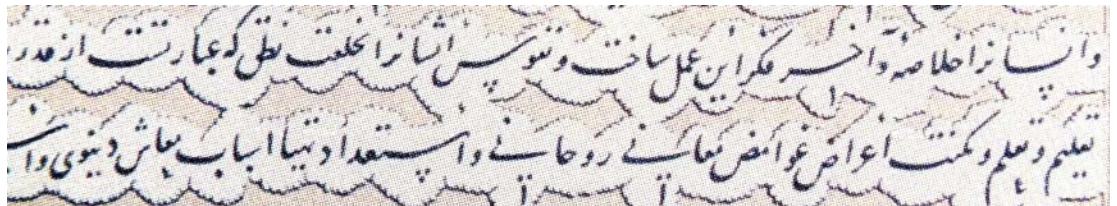 و انسانرا خلاصه و آخر فکر این عمل ساخت و نفوس ایشانرا بخلعت نطق که عبارتست از قدر
تعلیم و تعلم و مکنت اعراض غوامض معانی روحانی و استعداد تهیأ اسباب معاش دنیوی و